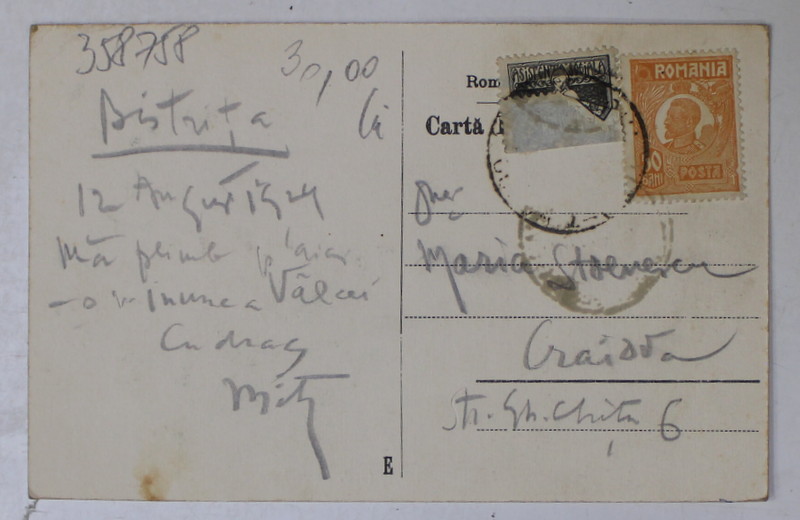 358758
30,00
Bistrița
12 August 1924
Mă plimb
minunea Vâlcei
Cu drag
Rom
Cartă
ASISTENȚA SOCIALA
ROMANIA
50 BANI
POSTA
Maria Stoenescu
Craiova
Str. Gh. Chițu 6
E